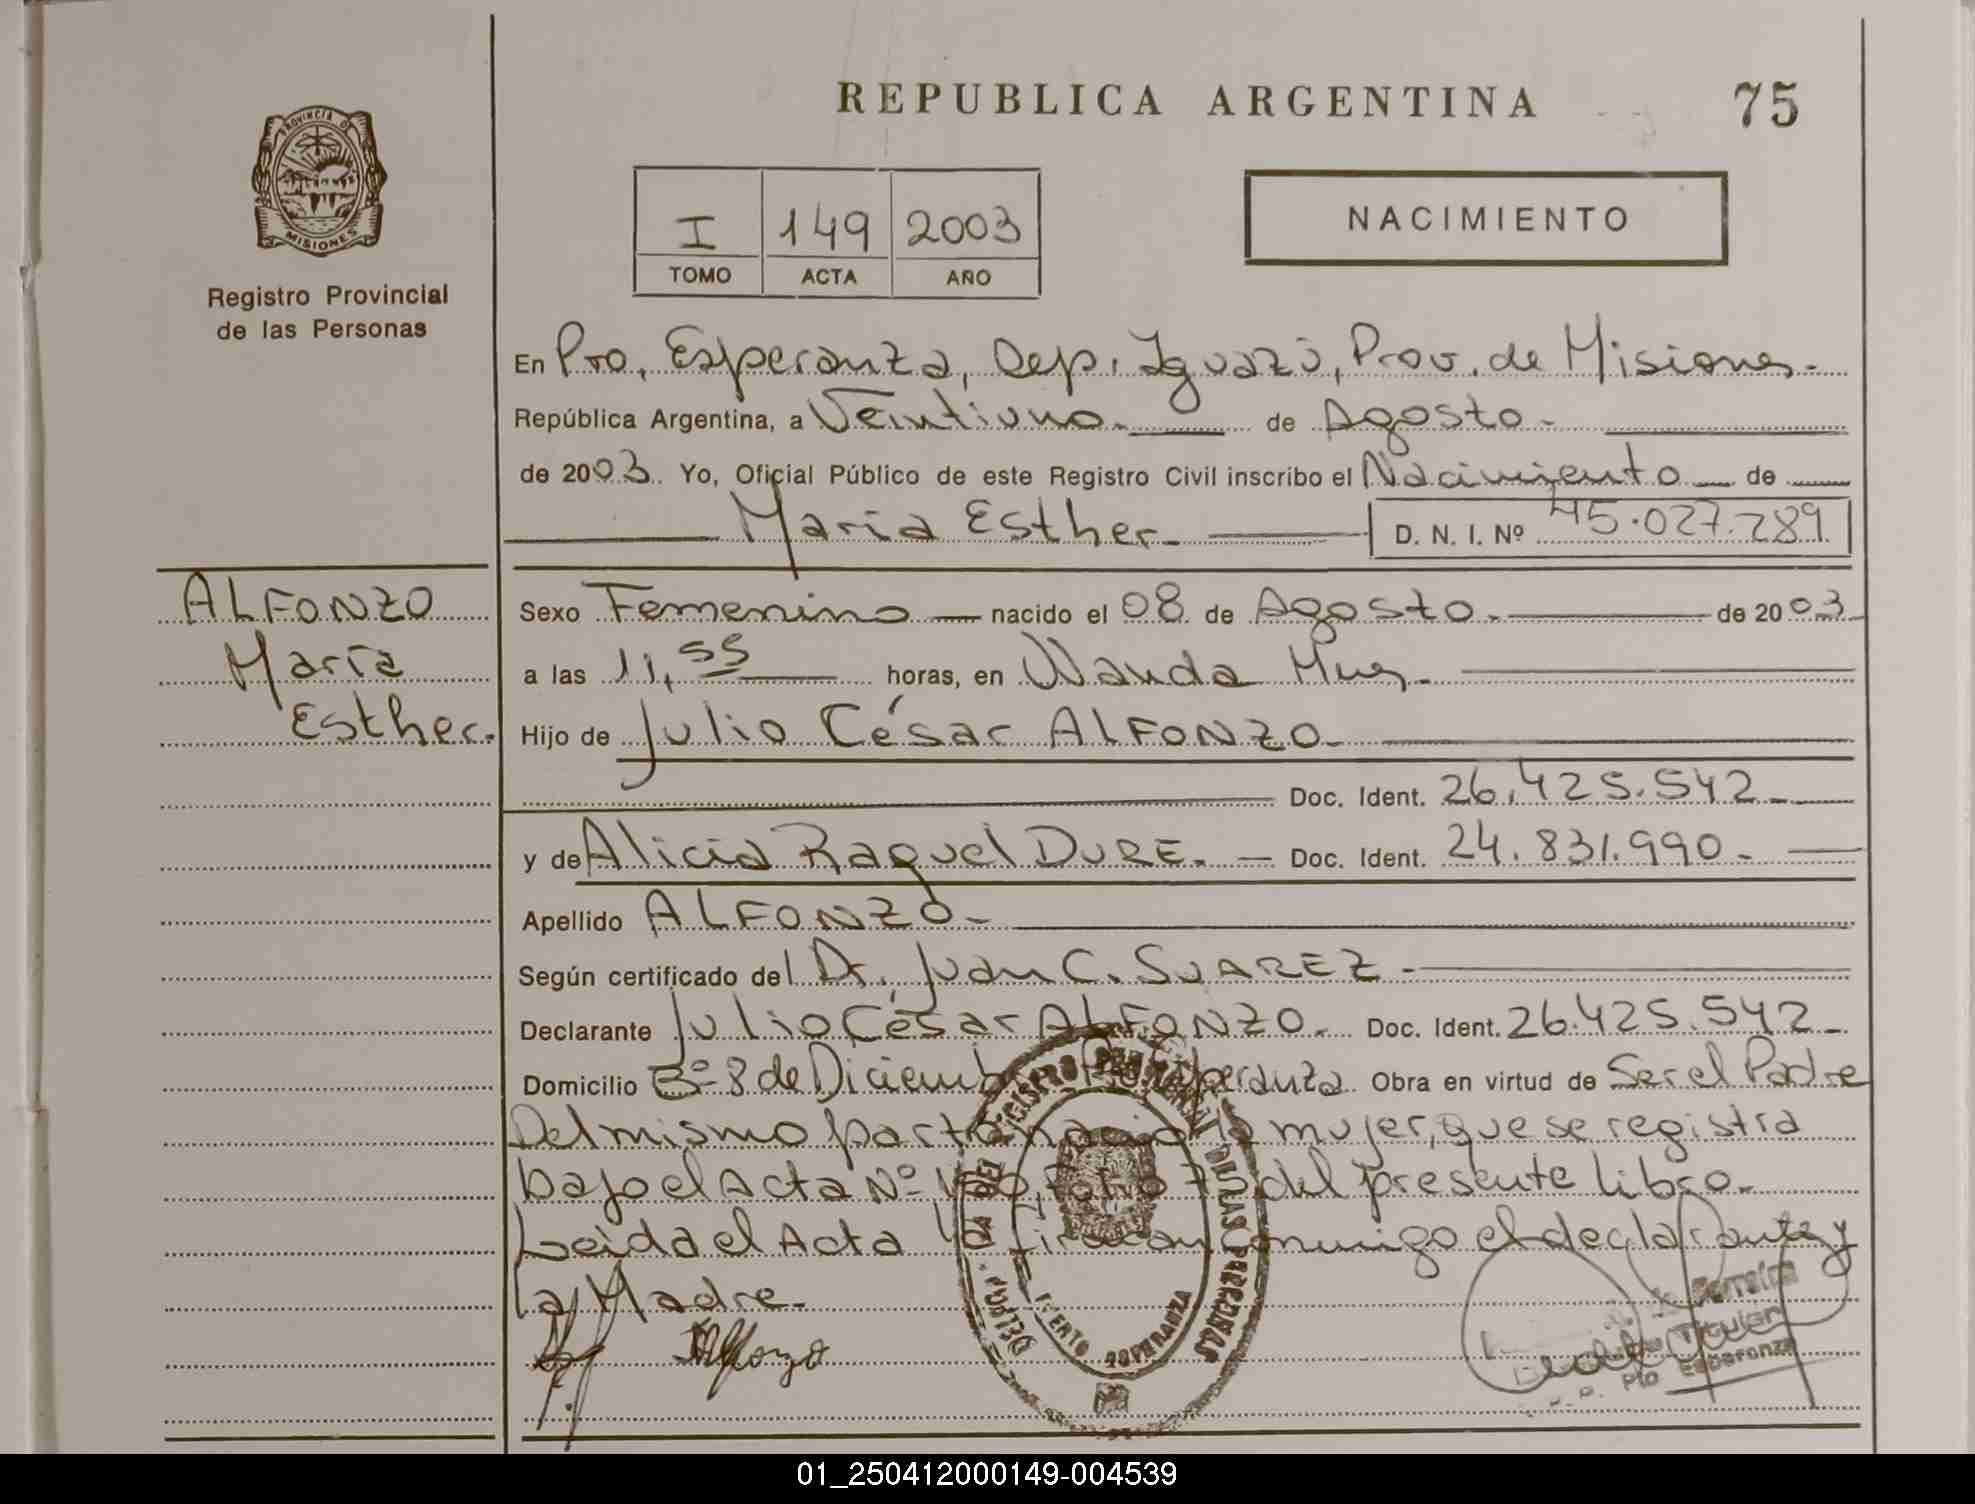 REPUBLICA ARGENTINA 75
PROVINCIA DE
MISIONES
Registro Provincial
de las Personas
I 149 2003
TOMO ACTA AÑO
NACIMIENTO
En Pto. Esperanza, Dep. Iguazú, Prov. de Misiones.
República Argentina, a Veintiuno. de Agosto.
de 2003. Yo, Oficial Público de este Registro Civil inscribo el Nacimiento de
María Esther. D. N. I. Nº 45.027.289
ALFONZO
María
Esther.
Sexo Femenino nacido el 08 de Agosto. de 2003
a las 11,55 horas, en Wanda Mnes.
Hijo de Julio César ALFONZO.
Doc. Ident. 26.425.542
y de Alicia Raquel DURE. Doc. Ident. 24.831.990.
Apellido ALFONZO.
Según certificado del Dr. Juan C. SUAREZ.
Declarante Julio César ALFONZO. Doc. Ident. 26.425.542
Domicilio Bº 8 de Diciembre Esperanza. Obra en virtud de Ser el Padre
Del mismo parto nació la mujer, que se registra
bajo el Acta Nº Folio del presente libro.
Leída el Acta conmigo el declarante y
la Madre.
Alfonzo
REGISTRO PROVINCIAL DE LAS PERSONAS
PUERTO ESPERANZA
Ferreira
Titular
Pto Esperanza
01_250412000149-004539